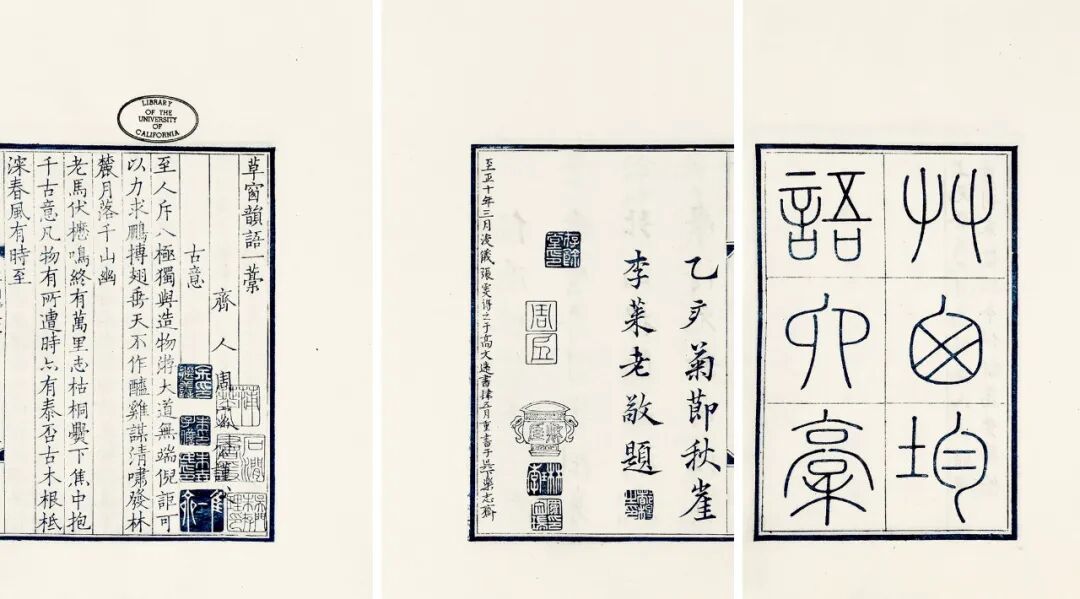 艸囪均
語六稾
乙亥菊節秋崖
李萊老敬題
存餘堂印
至正十年三月浚儀張雯得之于高文遠書肆五月重書于吳樂志齋
LIBRARY
OF THE
UNIVERSITY
OF
CALIFORNIA
草窗韻語一稾
齊人周
古意
至人斥八極獨與造物游大道無端倪詎可
以力求鵬摶翅垂天不作醯雞謀清嘯發林
麓月落千山幽
老馬伏櫪鳴終有萬里志枯桐爨下焦中抱
千古意凡物有所遭時亦有泰否古木根柢
深春風有時至